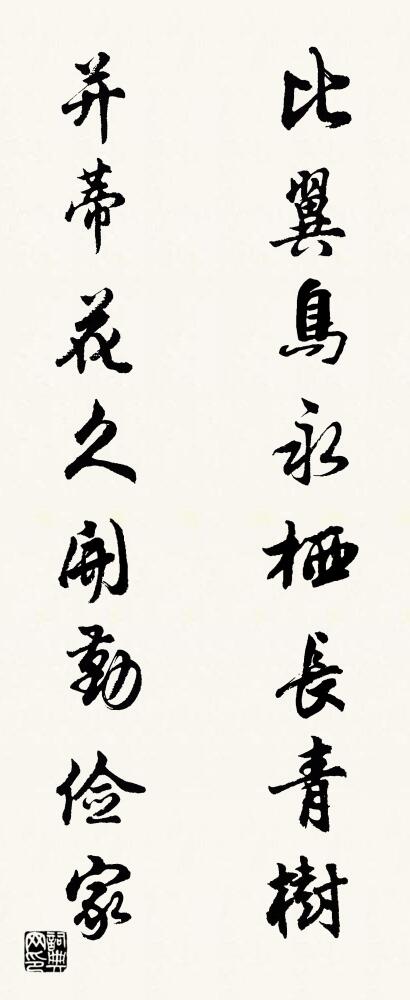 比翼鳥永栖長青樹
并蒂花久開勤俭家
詞典网印